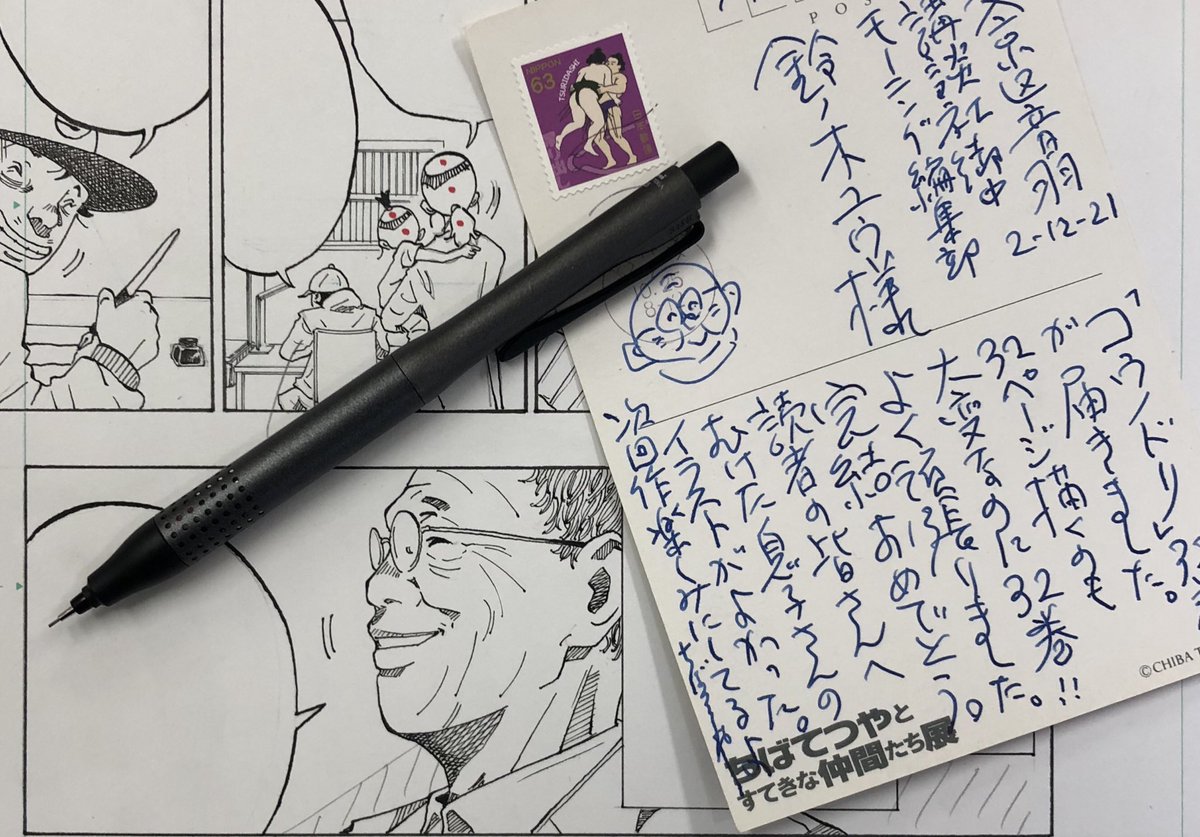 POS
NIPPON
63
TSURIDASHI
日本郵便
京区音羽 2-12-21
講談社御中
モーニング編集部
鈴ノ木ユウ様
「コウノドリ」
が届きました。
32ページ描くのも
大変なのに32巻!!
よく頑張りました。
完結おめでとう。
読者の皆さんへ
むけた息子さんの
イラストがよかった。
次回作楽しみにしてるよ
ちばてつや
©CHIBA T
ちばてつやと
すてきな仲間たち展